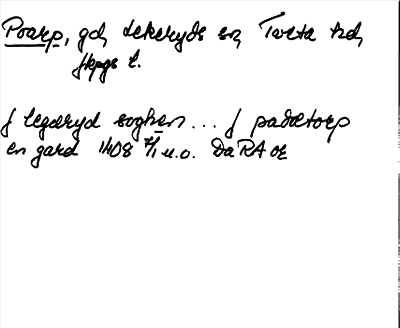 Poarp, gd, Lekeryds sn, Tveta hd,
Jkpgs l.
j legæryd soghen ... j padætorp
en gard 1408 7/1 u.o. DaRA or